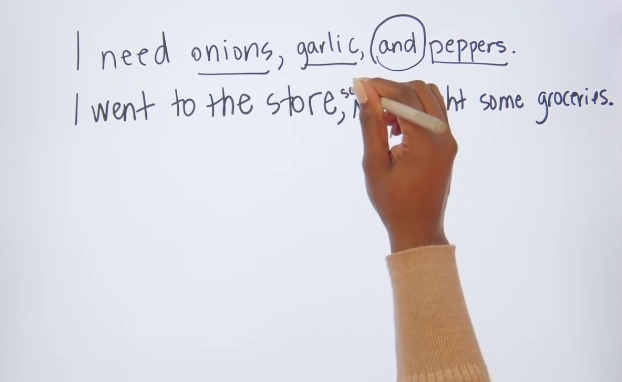 I need onions, garlic, and peppers.
I went to the store, some groceries.